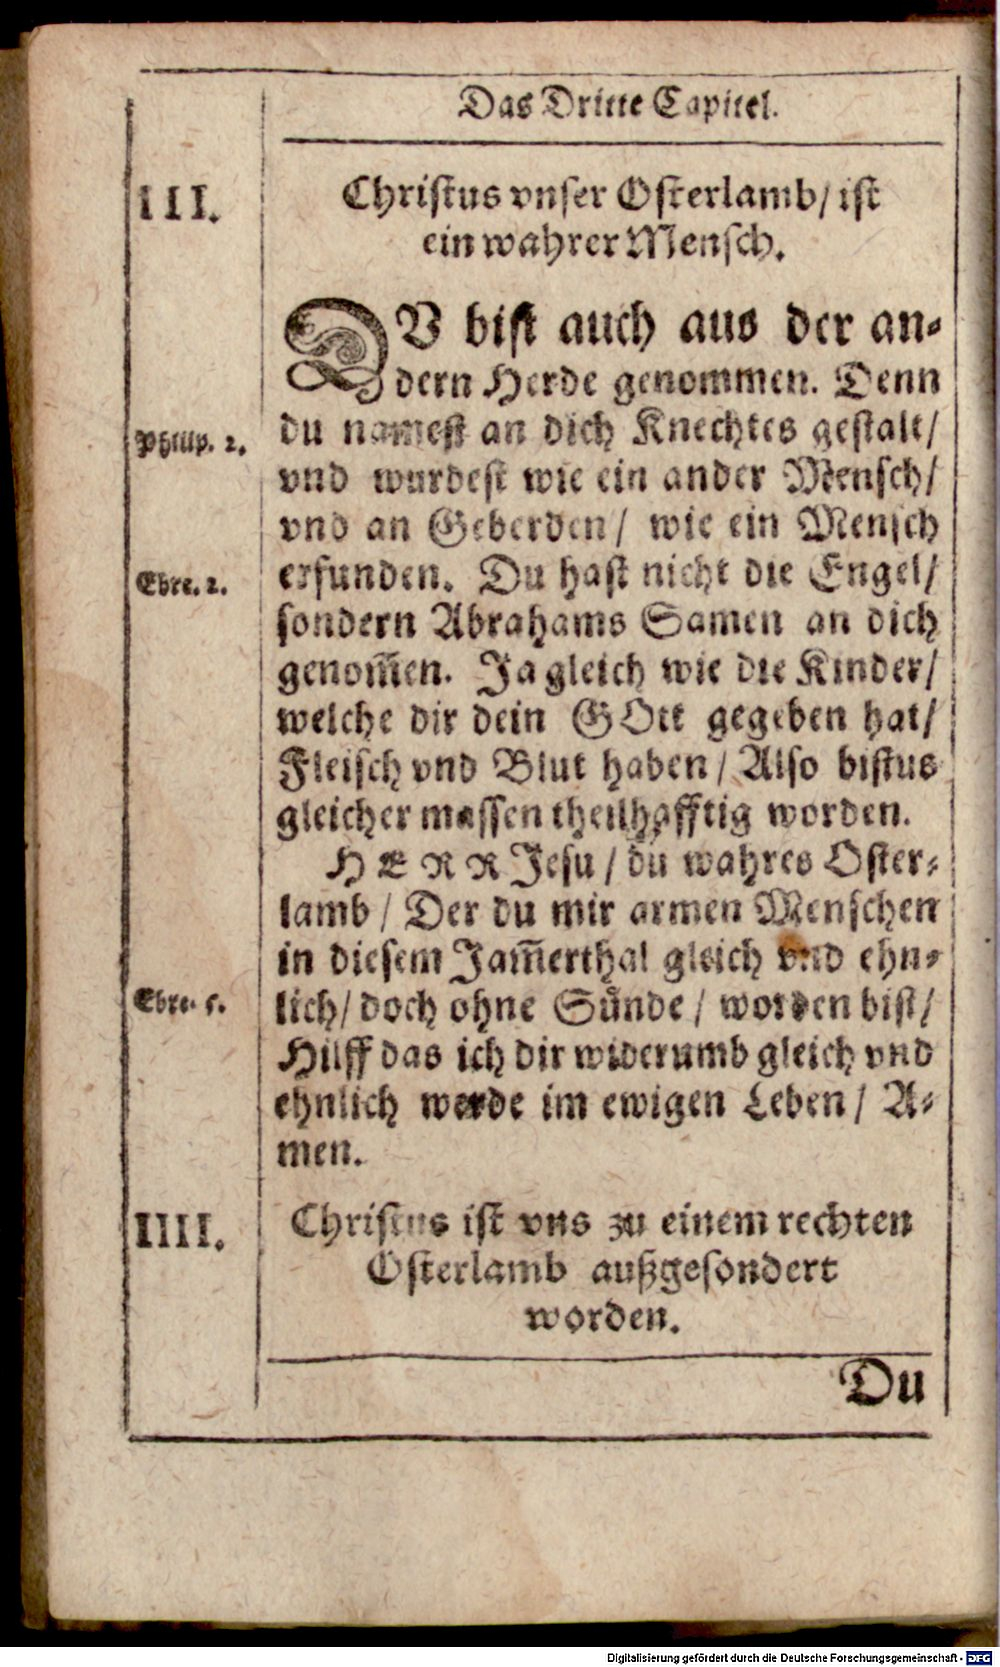 Das Dritte Capitel.
III.
Christus vnser Osterlamb/ ist
ein wahrer Mensch.
DV bist auch aus der an-
dern Herde genommen. Denn
du namest an dich Knechtes gestalt/
Philip. 2.
vnd wurdest wie ein ander Mensch/
vnd an Geberden/ wie ein Mensch
erfunden. Du hast nicht die Engel/
Ebre. 2.
sondern Abrahams Samen an dich
genom̃en. Ja gleich wie die Kinder/
welche dir dein GOtt gegeben hat/
Fleisch vnd Blut haben/ Also bistus
gleicher massen theilhafftig worden.
HERR Jesu/ du wahres Oster-
lamb/ Der du mir armen Menschen
in diesem Jam̃erthal gleich vnd ehn-
lich/ doch ohne Sünde/ worden bist/
Ebre. 5.
Hilff das ich dir widerumb gleich vnd
ehnlich werde im ewigen Leben/ A-
men.
IIII.
Christus ist vns zu einem rechten
Osterlamb außgesondert
worden.
Du
Digitalisierung gefördert durch die Deutsche Forschungsgemeinschaft - DFG